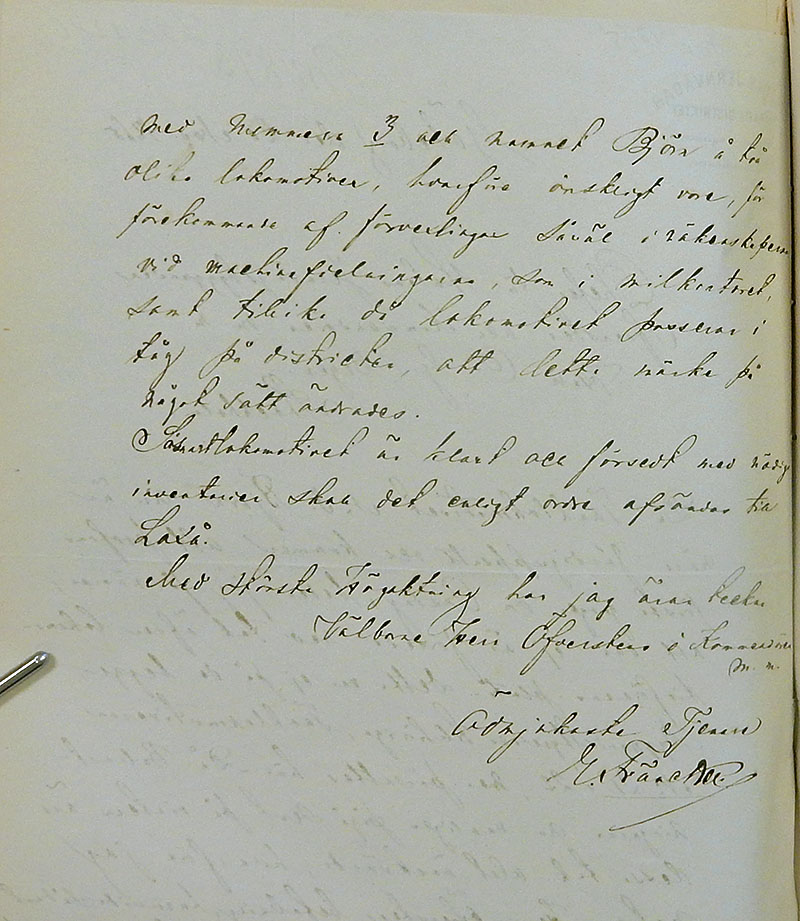 med Nummern 3 och namnet Björn å två
olika lokomotiver, hvarföre önskligt vore, för
förekommande af förvexlingar såväl i räkenskaperna
vid machinafdelningarne, som i milkontoret,
samt tillika då lokomotivet passerar i
tåg på districten, att detta märke på
något sätt ändrades.
Såsnart lokomotivet är klart och försedt med nödiga
inventarier skall det enligt ordre afsändas till
Laxå.
Med största Högaktning har jag äran teckna
Välborne Herr Öfverstens o Kommendörens
m. m.
Ödmjukaste Tjenare